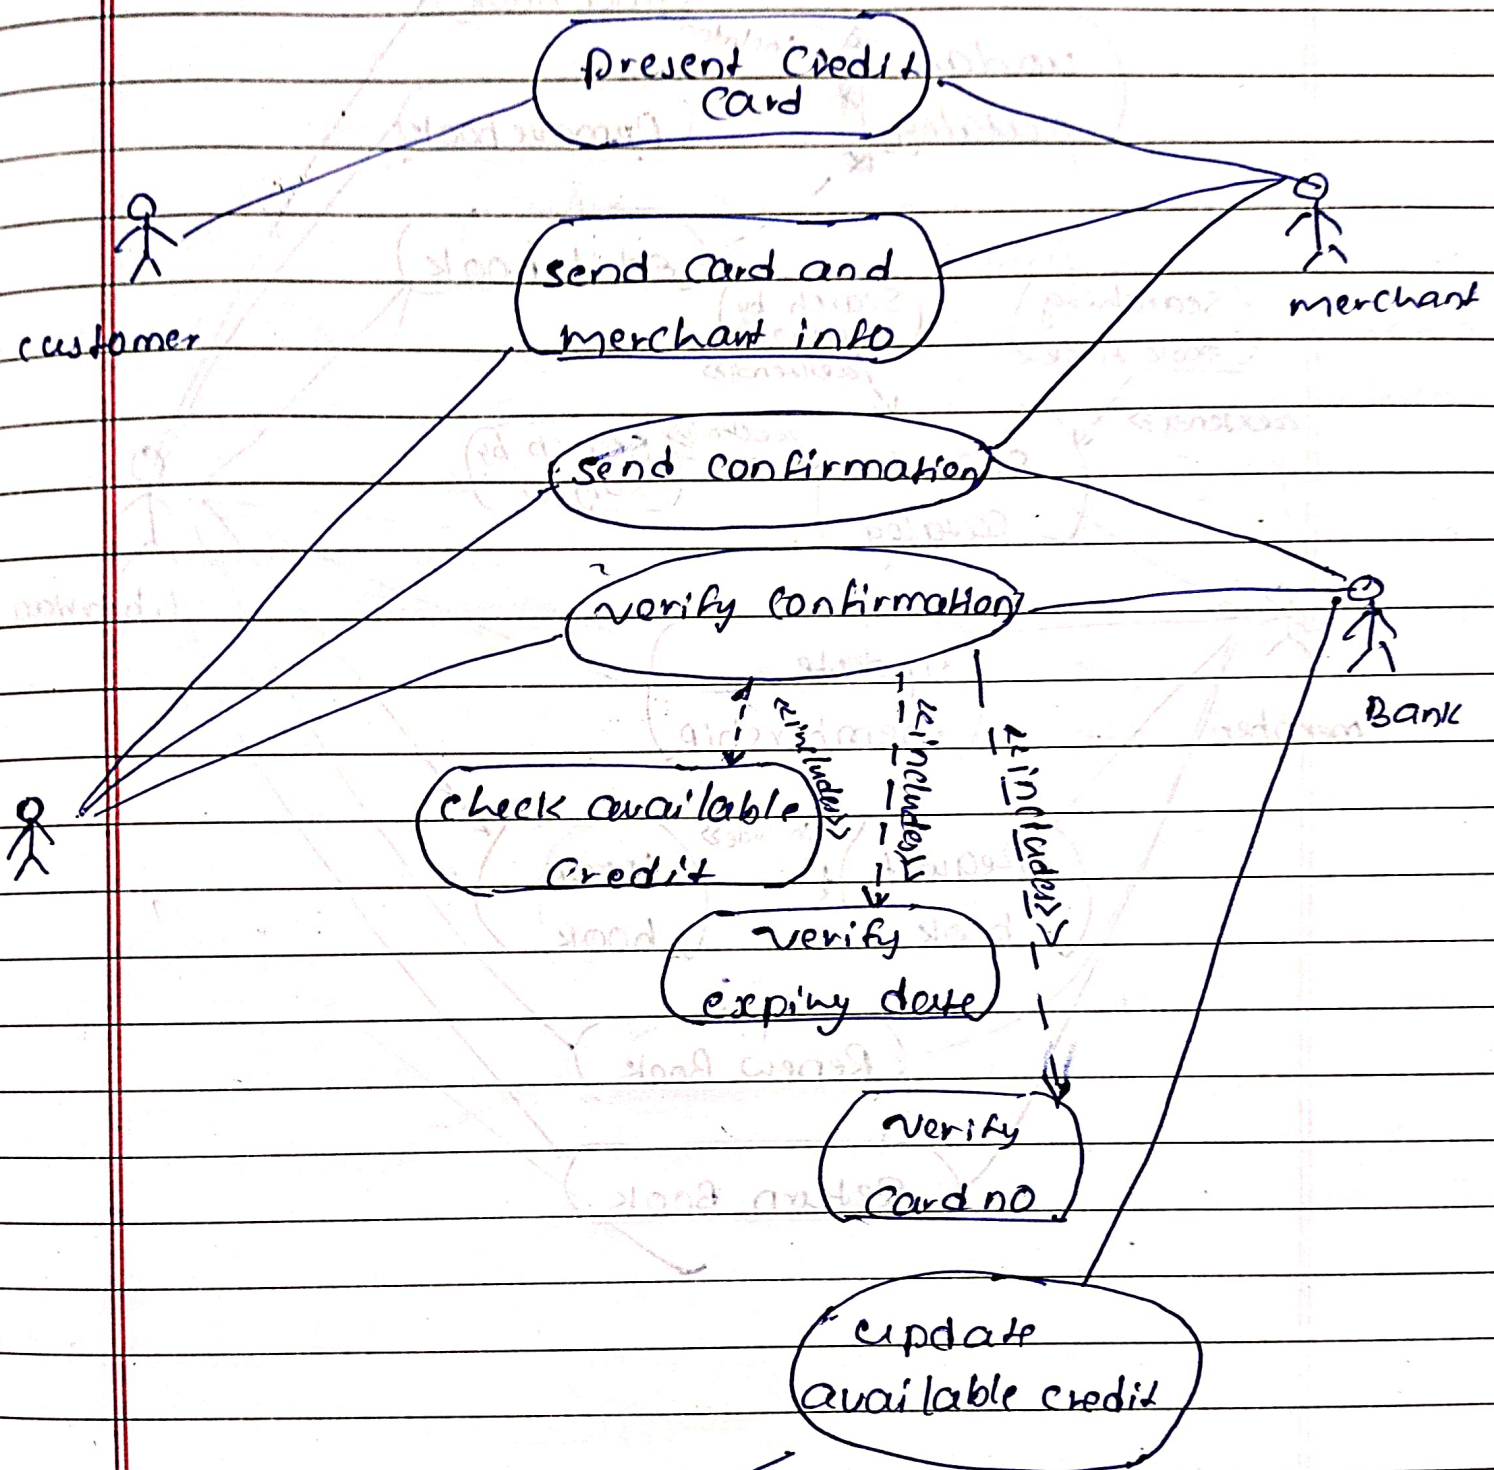 present Credit
Card
send Card and
merchant info
merchant
customer
send confirmation
verify confirmation
Bank
<<includes>>
<<includes>>
<<includes>>
check available
Credit
verify
expiry date
verify
Card no
update
available credit